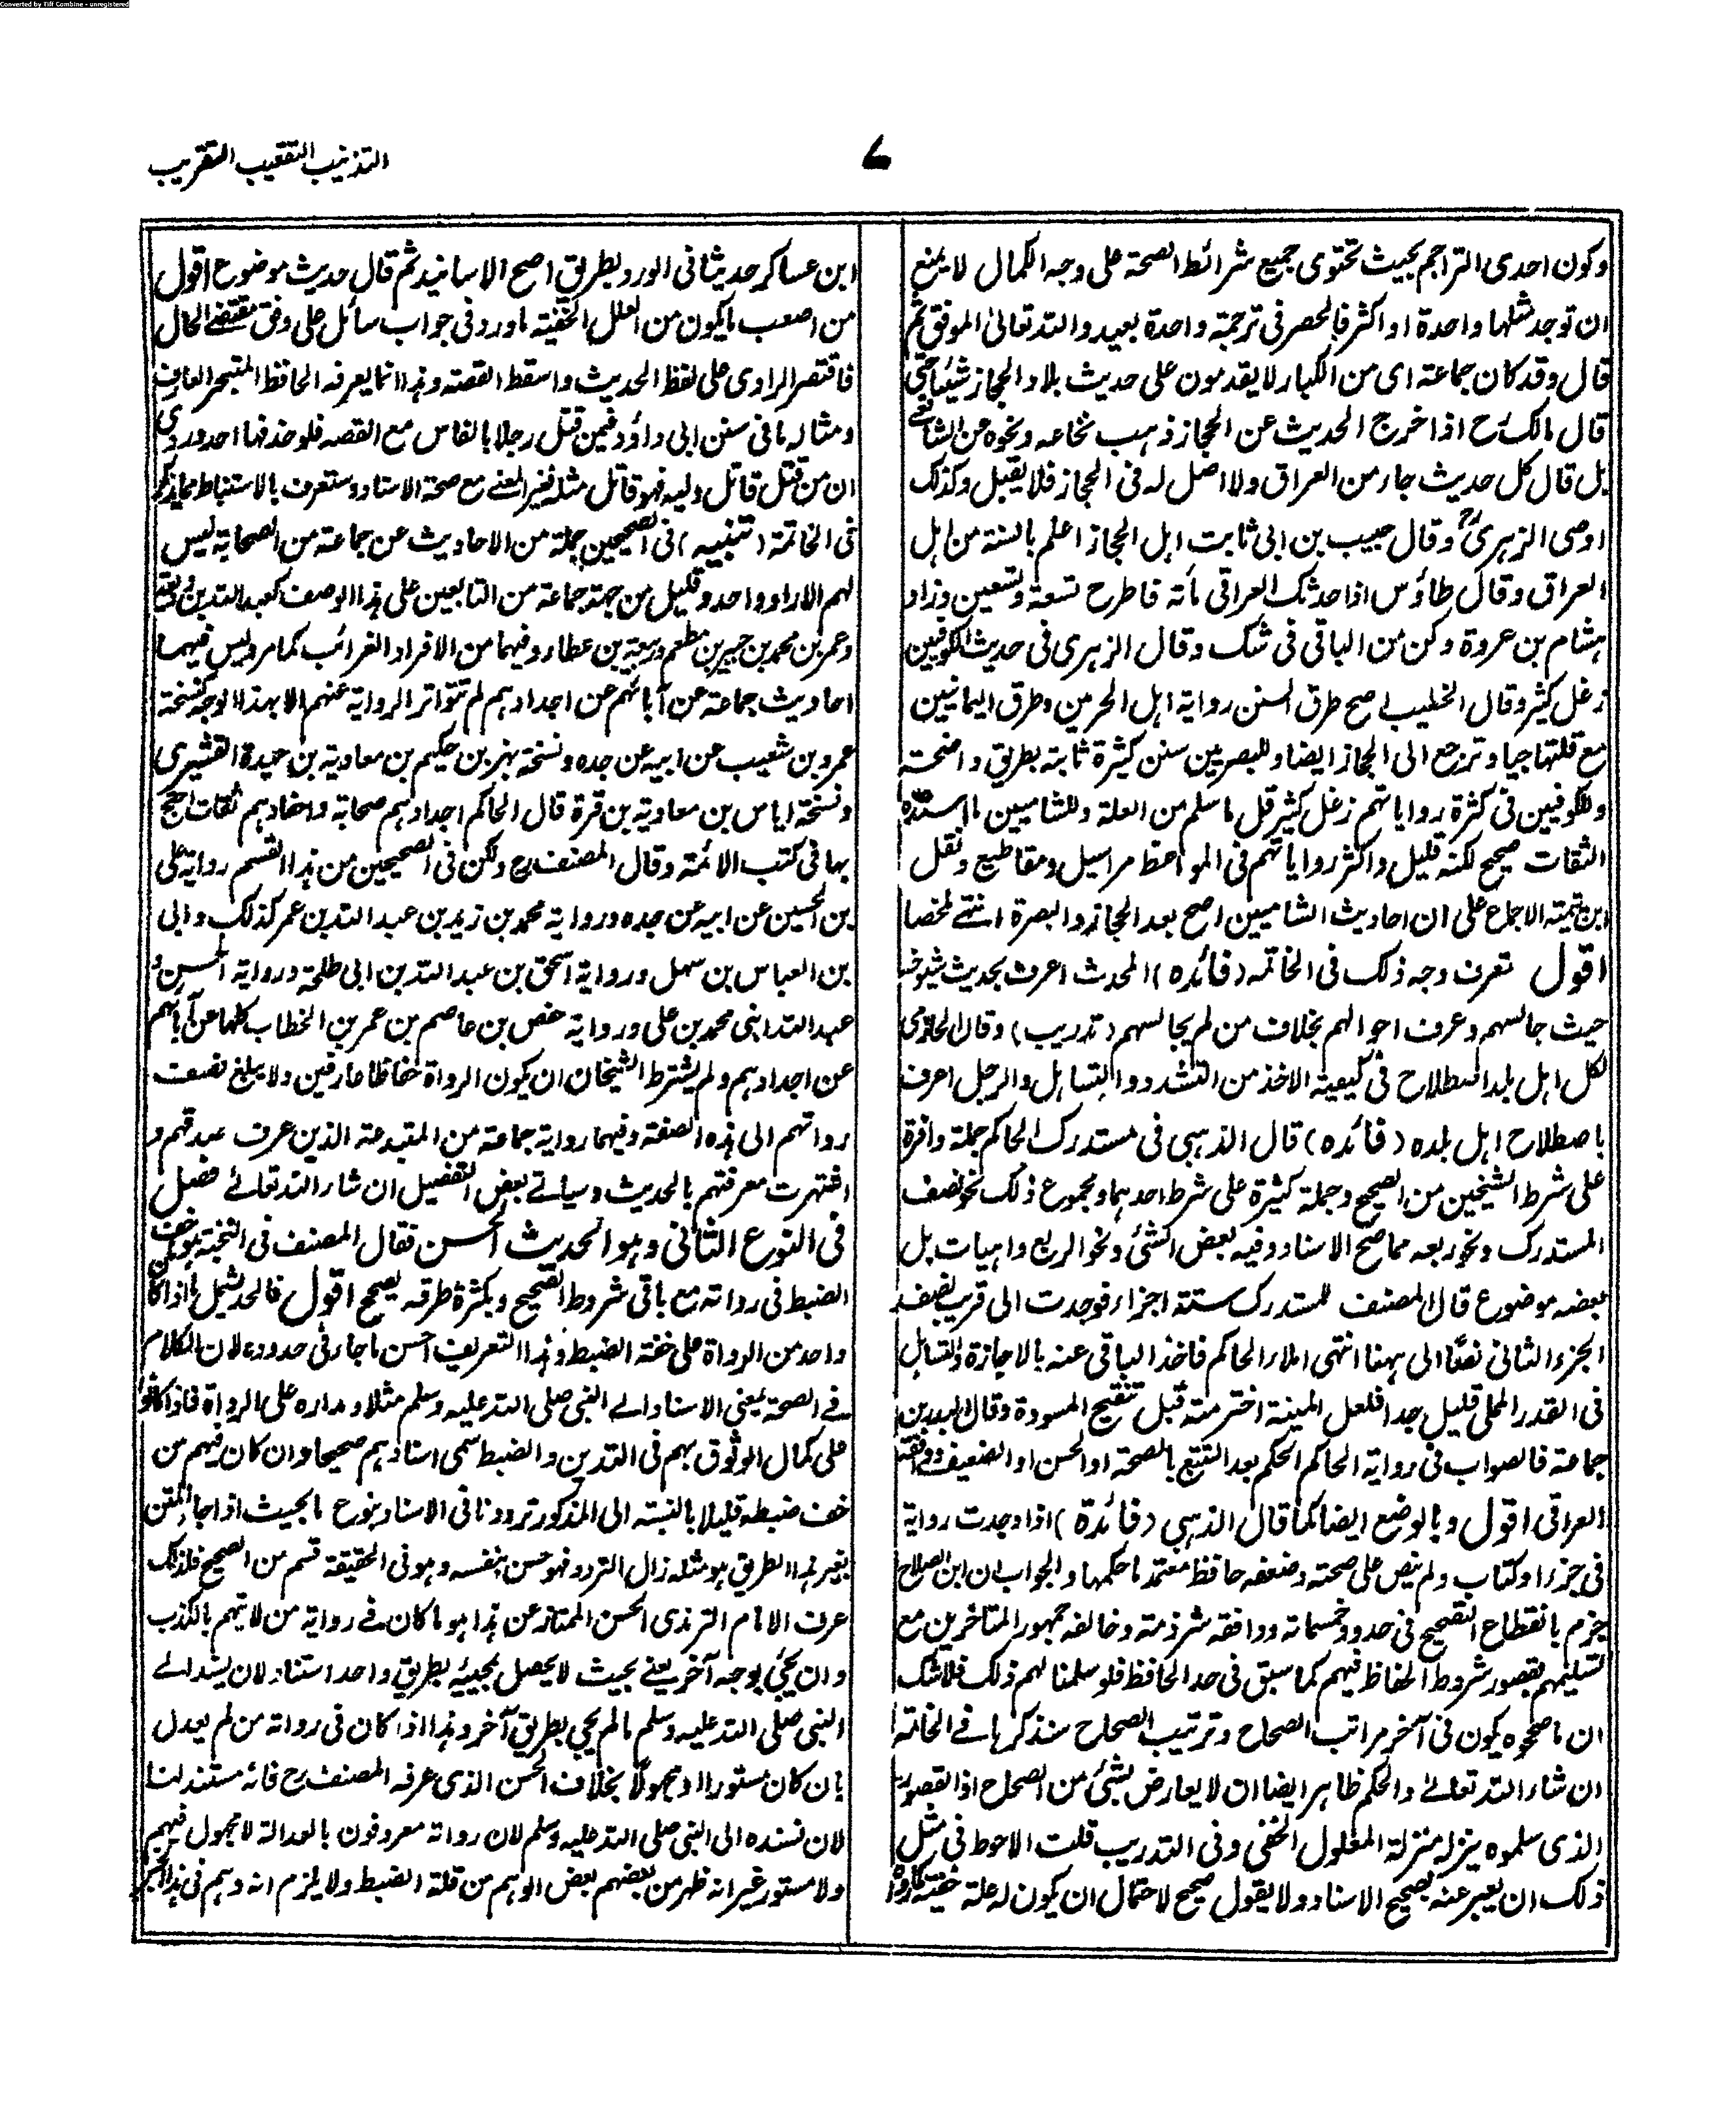 Converted by Tiff Combine - unregistered
التذنيب التعقيب التقريب
٧
وكون احدى التراجم بحيث تحتوى جميع شرائط الصحة على وجه الكمال لا يمنع
ان توجد مثلها واحدة او اكثر فالحصر فى ترجمة واحدة بعيد والله تعالىٰ الموفق ثم
قال وقد كان جماعة اى من الكبار لا يقدمون على حديث بلاد الحجاز شيئا حتى
قال مالكؒ ح اذا خرج الحديث عن الحجاز ذهب نخاعه ونحوه عن الشافعى
بل قال كل حديث جاء من العراق ولا اصل له فى الحجاز فلا يقبل وكذلك
اوصى الزهرىؒ وقال حبيب بن ابى ثابت اهل الحجاز اعلم بالسنة من اهل
العراق وقال طاؤس اذا حدثك العراقى مأته فاطرح تسعة وتسعين وزاد
هشام بن عروة وكن من الباقى فى شك وقال الزهرى فى حديث الكوفيين
زغل كثير وقال الخطيب اصح طرق السنن رواية اهل الحرمين وطرق اليمانيين
مع قلتها جياد وترجع الى الحجاز ايضا وللبصريين سنن كثيرة ثابتة بطريق واضحة
وللكوفيين فى كثرة رواياتهم زغل كثير قل ما سلم من العلة وللشاميين ما اسنده
الثقات صحيح لكنه قليل واكثر رواياتهم فى المواعظ مراسيل ومقاطيع ونقل
ابن تيمية الاجماع على ان احاديث الشاميين اصح بعد الحجاز والبصرة انتهے ملخصا
اقول تعرف وجه ذلك فى الخاتمه (فائده) المحدث اعرف بحديث شيوخه
حيث جالسهم وعرف احوالهم بخلاف من لم يجالسهم (تدريب) وقال الحازمى
لكل اهل بلد اصطلاح فى كيفية الاخذ من التشدد والتساهل والرجل اعرف
باصطلاح اهل بلده (فائده) قال الذهبى فى مستدرك الحاكم جملة وافرة
على شرط الشيخين من الصحيح وجملة كثيرة على شرط احدهما ومجموع ذلك نحو نصف
المستدرك ونحو ربعه مما صح الاسناد وفيه بعض الشئ ونحو الربع واهيات بل
بعضه موضوع قال المصنف للمستدرك ستة اجزاء فوجدت الى قريب نصف
الجزء الثانى نصًا الى ههنا انتهى املاء الحاكم فاخذ الباقى عنه بالاجازة والتساهل
فى القدر المملى قليل جدا فلعل المنية اخترمته قبل تنقيح المسودة وقال البدر بن
جماعة فالصواب فى رواية الحاكم الحكم بعد التتبع بالصحة او الحسن او الضعيف ووافقه
العراقى اقول وبالوضع ايضا كما قال الذهبى (فائدة) اذا وجدت رواية
فى جزء او كتاب ولم ينص على صحته وضعفه حافظ معتمد ما حكمها والجواب ان ابن الصلاح
جزم بانقطاع التصحيح فى حدود خمسمائة ووافقه شرذمة وخالفه جمهور المتاخرين مع
تسليمهم بقصور شروط الحفاظ فيهم كما سبق فى حد الحافظ فلو سلمنا لهم ذلك فلا شك
ان ما صححوه يكون فى آخر مراتب الصحاح وترتيب الصحاح سنذكرها فے الخاتمة
ان شاء الله تعالے والحكم ظاهر ايضا ان لا يعارض بشئ من الصحاح اذ القصور
الذى سلموه ينزله منزلة المعلول الخفى وفى التدريب قلت الاحوط فى مثل
ذلك ان يعبر عنه بصحيح الاسناد ولا يقول صحيح لاحتمال ان يكون له علة خفية كما روا
ابن عساكر حديثا فى الورد بطريق اصح الاسانيد ثم قال حديث موضوع اقول
من اصعب ما يكون من العلل الخفية ما ورد فى جواب سائل على وفق مقتضى الحال
فاقتصر الراوى على لفظ الحديث واسقط القصة وهذا انما يعرفه الحافظ المتبحر العارف
ومثاله ما فى سنن ابى داؤد فيمن قتل رجلا بالفاس مع القصه فلو حذفها احد وروى
ان من قتل قاتل وليه فهو قاتل مثله فغير المعنے مع صحة الاسناد وستعرف بالاستنباط مما يذكر
فى الخاتمة (تنبيه) فى الصحيحين جملة من الاحاديث عن جماعة من الصحابة ليس
لهم الا راو واحد وقليل من جهة جماعة من التابعين على هذا الوصف كعبد الله بن وديعة
وعمر بن محمد بن جبير بن مطعم وربيعة بن عطاء وفيهما من الافراد الغرائب كما مر وليس فيهما
احاديث جماعة عن آبائهم عن اجدادهم لم تتواتر الرواية عنهم الا بهذا الوجه كنسخة
عمرو بن شعيب عن ابيه عن جده ونسخة بهز بن حكيم بن معاوية بن حيدة القشيرى
ونسخة اياس بن معاوية بن قرة قال الحاكم اجدادهم صحابة واحفادهم ثقات احتج
بها فى كتب الائمة وقال المصنفؒ ولكن فى الصحيحين من هذا القسم رواية على
بن الحسين عن ابيه عن جده ورواية محمد بن زيد بن عبد الله بن عمر كذلك وابى
بن العباس بن سهل ورواية اسحق بن عبد الله بن ابى طلحة ورواية الحسن و
عبد الله ابنى محمد بن على ورواية حفص بن عاصم بن عمر بن الخطاب كلها عن آبائهم
عن اجدادهم ولم يشترط الشيخان ان يكون الرواة حفاظا عارفين ولا يبلغ نصف
رواتهم الى هذه الصفة وفيهما رواية جماعة من المبتدعة الذين عرف صدقهم و
اشتهرت معرفتهم بالحديث وسياتے بعض التفصيل ان شاء الله تعالے فصل
فى النوع الثانى وهو الحديث الحسن فقال المصنف فى النخبة هو خف
الضبط فى رواته مع باقى شروط الصحيح وبكثرة طرقه يصحح اقول فالحد يشمل ما اذا كا
واحد من الرواة على خفة الضبط وهذا التعريف احسن ما جاء فى حدوده لان الكلام
فے الصحة بمعنى الاسناد الے النبى صلى الله عليه وسلم مثلا ومداره على الرواة فاذا كانوا
على كمال الوثوق بهم فى التدين والضبط سمى اسنادهم صحيحا وان كان فيهم من
خف ضبطه قليلا بالنسبة الى المذكور ترددنا فى الاسناد بنوع ما بحيث اذا جاء المتن
بغير هذا الطريق هو مثله زال التردد فهو حسن بنفسه وهو فى الحقيقة قسم من الصحيح فلذلك
عرف الامام الترمذى الحسن الممتاز عن هذا هو ما كان فے رواية من لا يتهم بالكذب
وان يجئ بوجه آخر يعنے بحيث لا يحصل بمجيئه بطريق واحد استناد لان يسند الے
النبى صلى الله عليه وسلم ما لم يجئ بطريق آخر وهذا اذا كان فى رواته من لم يعدل
بان كان مستورا او مجهولا بخلاف الحسن الذى عرفه المصنفؒ ح فانه مستند لنا
لان نسنده الى النبى صلى الله عليه وسلم لان رواته معروفون بالعدالة لا مجهول فيهم
ولا مستور غير انه ظهر من بعضهم بعض الوهم من قلة الضبط ولا يلزم انه وهم فى هذا الخبر